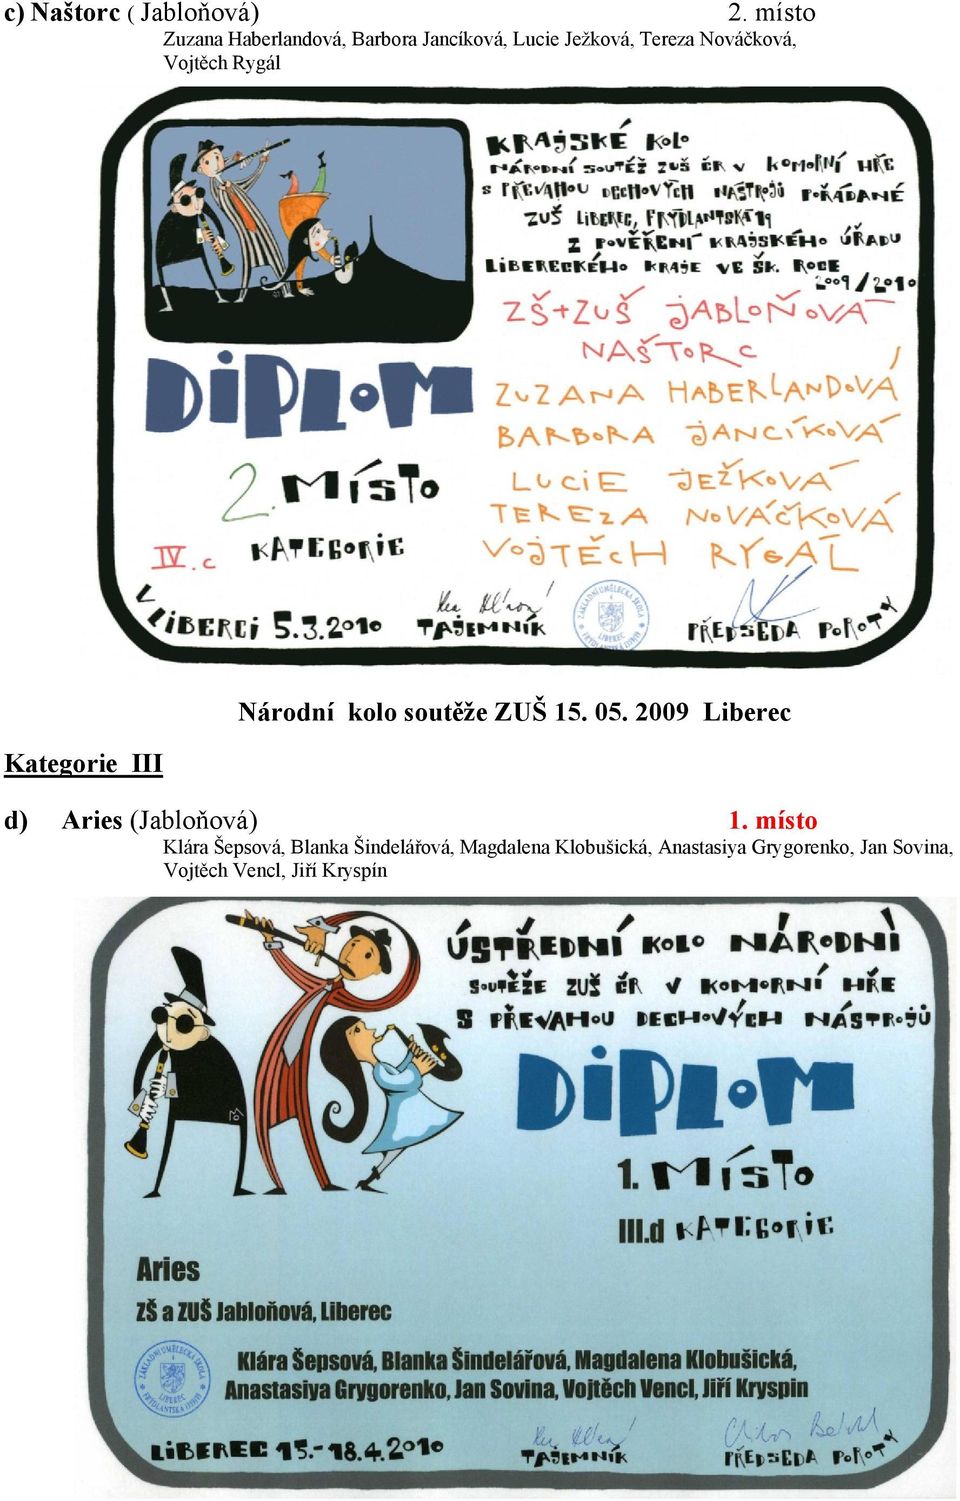 c) Naštorc ( Jabloňová) 2. místo
Zuzana Haberlandová, Barbora Jancíková, Lucie Ježková, Tereza Nováčková,
Vojtěch Rygál
KRAJSKÉ KOLO
NÁRODNÍ SOUTĚŽ ZUŠ ČR V KOMORNÍ HŘE
S PŘEVAHOU DECHOVÝCH NÁSTROJŮ POŘÁDANÉ
ZUŠ LIBEREC, FRÝDLANTSKÁ 19
Z POVĚŘENÍ KRAJSKÉHO ÚŘADU
LIBERECKÉHO KRAJE VE ŠK. ROCE
2009/2010
ZŠ+ZUŠ JABLOŇOVÁ
NAŠTORC
DIPLOM
ZUZANA HABERLANDOVÁ
BARBORA JANCÍKOVÁ
2. MÍSTO
LUCIE JEŽKOVÁ
TEREZA NOVÁČKOVÁ
IV.c KATEGORIE
VOJTĚCH RYGÁL
V LIBERCI 5.3.2010 TAJEMNÍK PŘEDSEDA POROTY
ZÁKLADNÍ UMĚLECKÁ ŠKOLA LIBEREC
Národní kolo soutěže ZUŠ 15. 05. 2009 Liberec
Kategorie III
d) Aries (Jabloňová) 1. místo
Klára Šepsová, Blanka Šindelářová, Magdalena Klobušická, Anastasiya Grygorenko, Jan Sovina,
Vojtěch Vencl, Jiří Kryspín
ÚSTŘEDNÍ KOLO NÁRODNÍ
SOUTĚŽE ZUŠ ČR V KOMORNÍ HŘE
S PŘEVAHOU DECHOVÝCH NÁSTROJŮ
DIPLOM
1. MÍSTO
III.d KATEGORIE
Aries
ZŠ a ZUŠ Jabloňová, Liberec
Klára Šepsová, Blanka Šindelářová, Magdalena Klobušická,
Anastasiya Grygorenko, Jan Sovina, Vojtěch Vencl, Jiří Kryspin
ZÁKLADNÍ UMĚLECKÁ ŠKOLA LIBEREC FRÝDLANTSKÁ
LIBEREC 15.-18.4.2010 TAJEMNÍK PŘEDSEDA POROTY